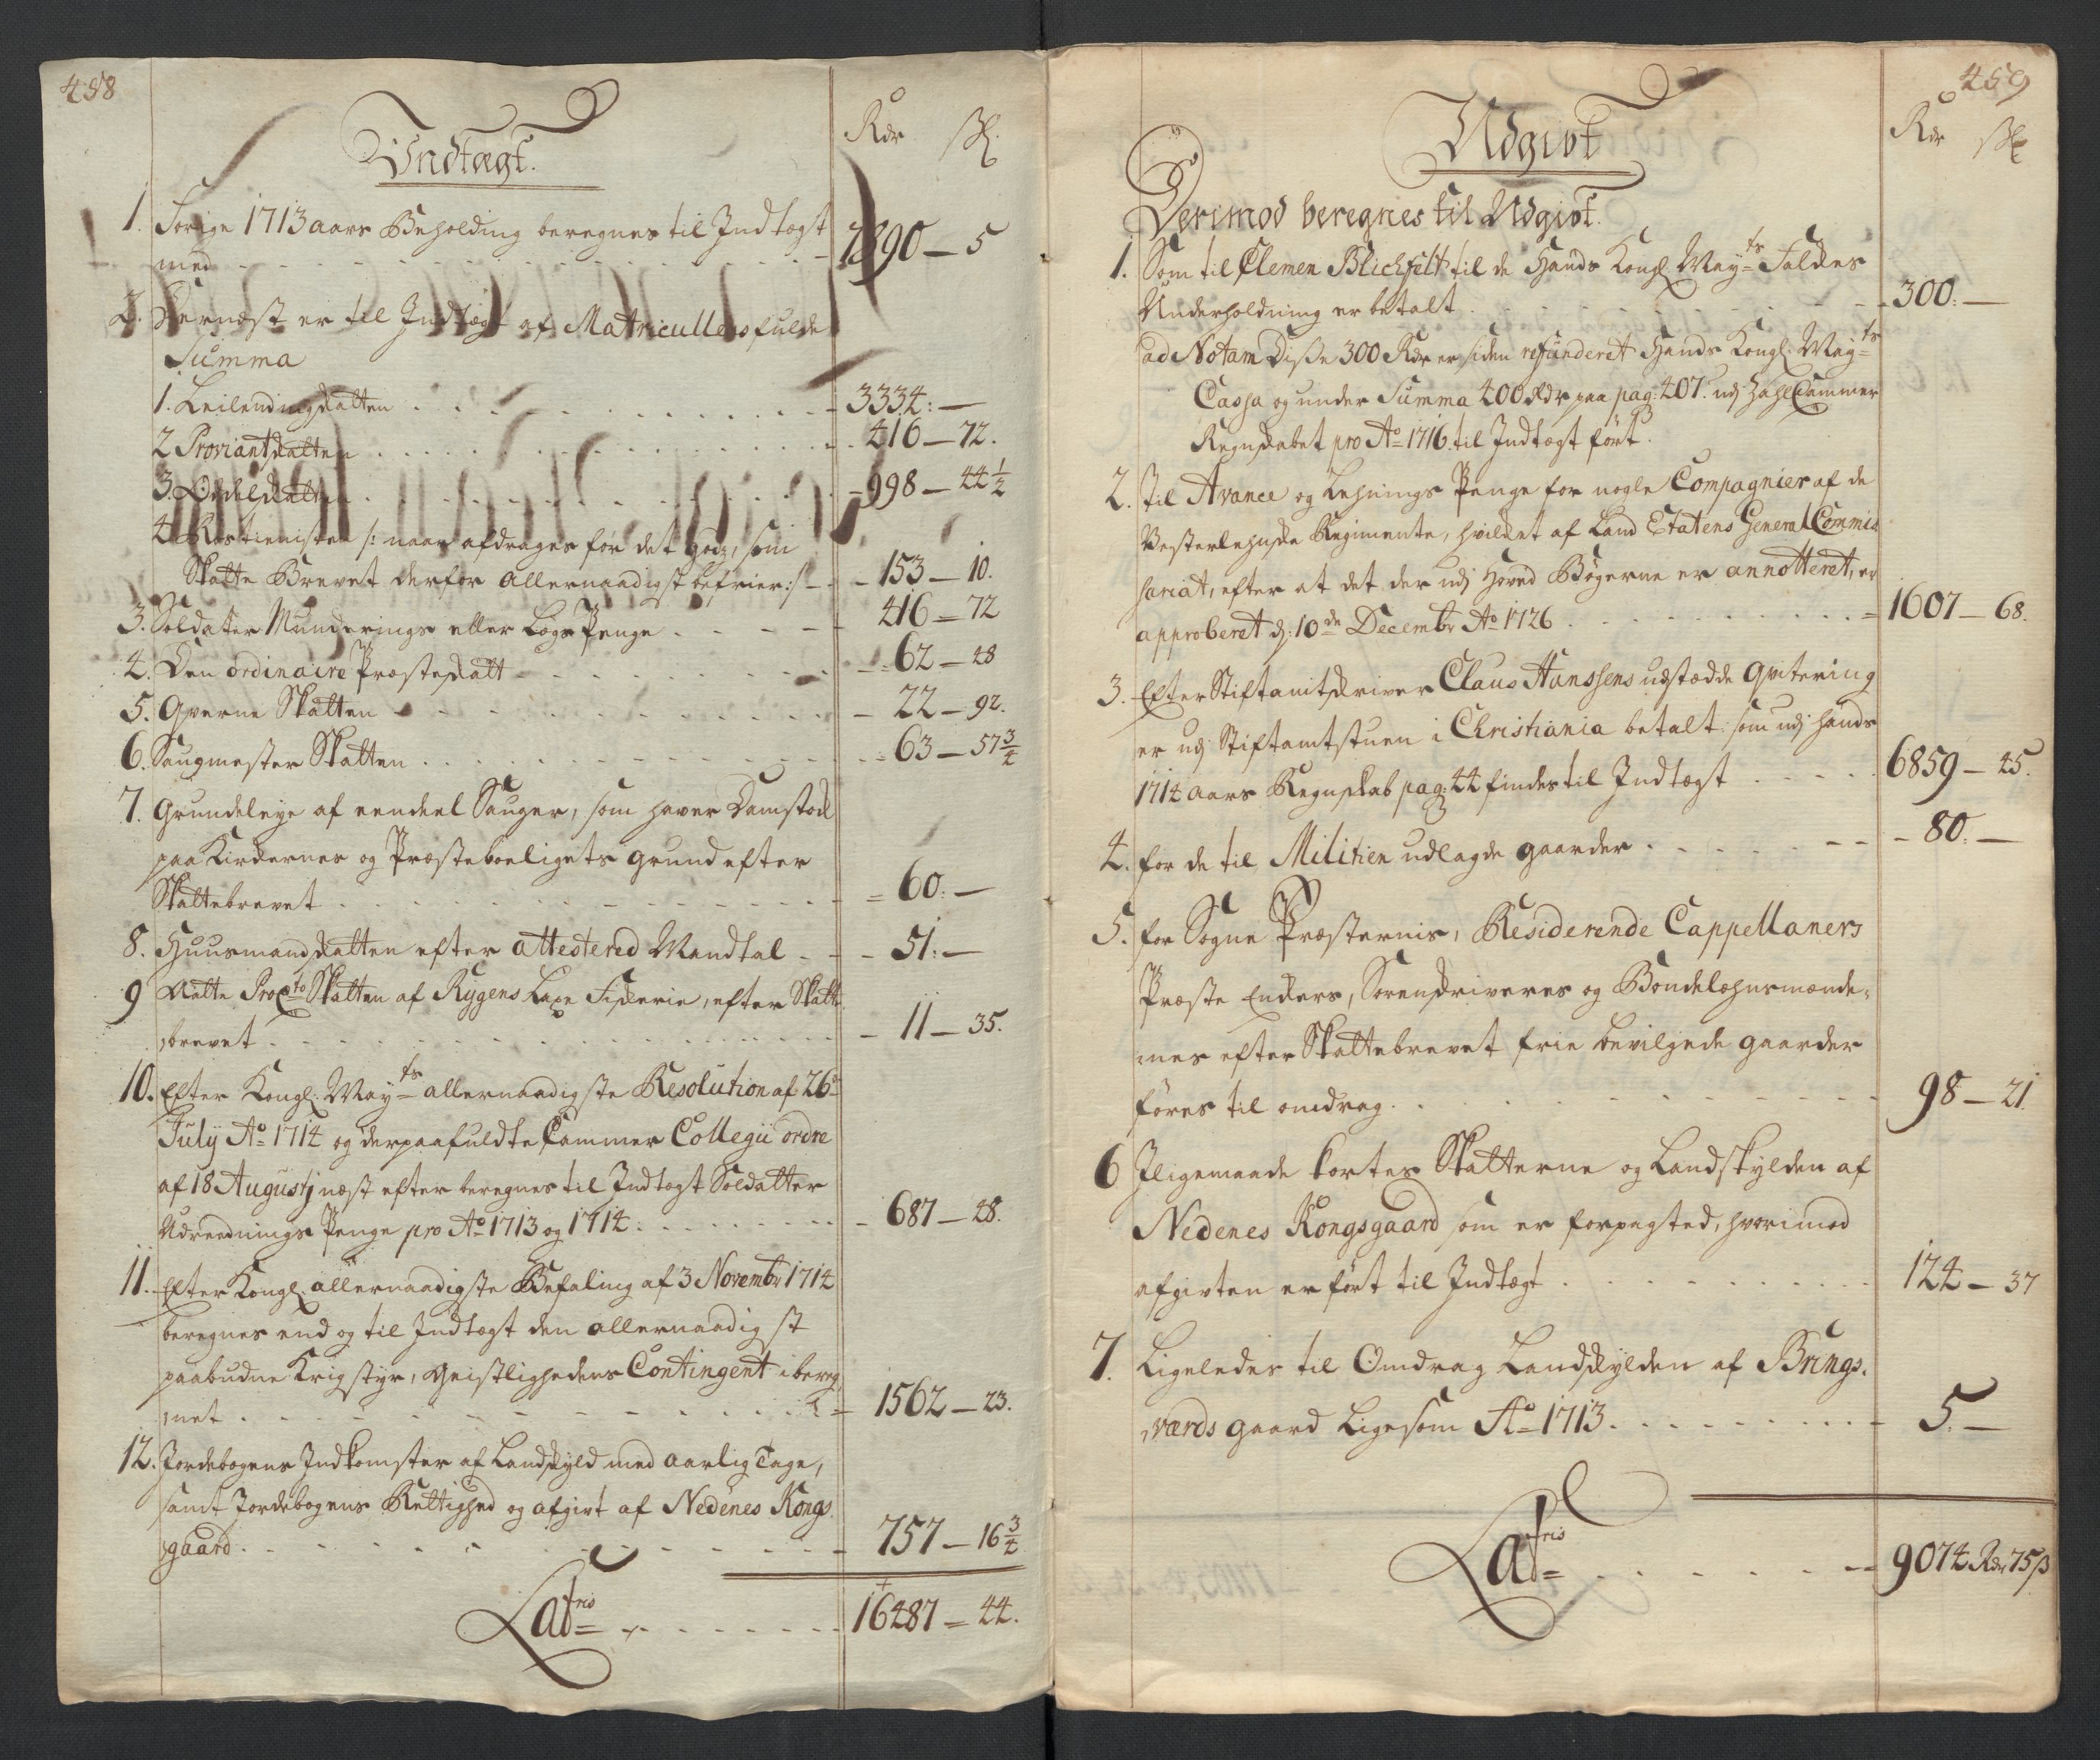 458
Indtægt.
Rdr ß
1. Forige 1713 aars Beholding beregnes til Indtægt
med - - - 7890 - 5
2. Dernæst er til Indtægt af Matricullens fulde
Summa
1. Leilendingskatten . . . 3334: -
2 Proviantskatten . . . 416 - 72.
3. Odelskatten . . . 998 - 44 1/2
4. Rostienisten /: naar afdrages for det Godz, som
Skatte Brevet derfor allernaadigst befrier :/ - 153 - 10.
3. Soldater Munderings eller Løgs Penge . . . 416 - 72
4. Den ordinaire Præsteskatt - - - 62 - 48
5. Qverne Skatten - - - 22 - 92.
6. Saugmester Skatten . . . 63 - 57 3/4
7. Grundeleye af eendeel Sauger, som haver Damstock
paa Kirckernes og Præsteboeligets grund efter
Skattebrevet . . . 60: -
8. Huusmandskatten efter attestered Mandtal - - 51: -
9 Aatte Pro Cto Skatten af Rygens Laxe Fiskerie, efter Skatte
brevet . . . 11 - 35.
10. Efter Kongl. Mayts allernaadigste Resolution af 26
July Ao 1714 og derpaafuldte Cammer Collegii ordre
af 18 Augustj næst efter beregnes til Indtægt Soldatter
Udreednings Penge pro Ao 1713 og 1714 . . . 687 - 28.
11. Efter Kongl. allernaadigste Befaling af 3 Novembr 1714
beregnes end og til Indtægt den allernaadigst
paabudne Krigstyr, Geistlighedens Contingent ibereg
net . . . 1562 - 23.
12. Jordebogens Indkomster af Landskyld med aarlig Tage,
samt Jordebogens Rettighed og afgivt af Nedenes Kongs
gaard . . . 757 - 16 3/4
Latris . . . 16487 = 44.
459
Udgivt
Rdr ß
Derimod beregnes til Udgivt.
1. Som til Clemen Blichfelt til de Hands Kongl. Mayts Falckes
Underholdning er betalt . . . 300: -
ad Notam Disse 300 Rdr er siden refunderet Hands Kongl. Mayts
Cassa og under Summa 400 Rdr paa pag: 407. udj Zahl Cammer
Regnskabet pro Ao 1716 til Indtægt ført.
2. Til Avance og Lehnings Penge for nogle Compagnier af de
Vesterlehnske Regimente, hvilcket af Land Etatens General Commis
sariat, efter at det der udj Hoved Bøgerne er annotteret, er
approberet d: 10de Decembr Ao 1726 . . . 1607 - 68.
3. Efter Stiftamtskriver Claus Hanssens udstædde Qvitering
er udj Stiftamtstuen i Christiania betalt: som udj hands
1714 aars Regnskab pag: 44 findes til Indtægt . . . 6859 - 45.
4. for de til Militien udlagde gaarder . . . 80: -
5. for Sogne Præsternis, Residerende Cappellaners
Præste Enckers, Sorenskriveres og Bondelehnsmænde-
nes efter Skattebrevet frie bevilgede gaarder
føres til omdrag . . . 98 - 21.
6 Iligemaade kortes Skatterne og Landskylden af
Nedenes Kongsgaard som er forpagted, hvorimod
afgivten er ført til Indtægt . . . 124 - 37
7. Ligeledes til Omdrag Landskylden af Brings-
værds gaard Ligesom Ao 1713 . . . 5. -
Latris . . . 9074 Rdr 75 ß